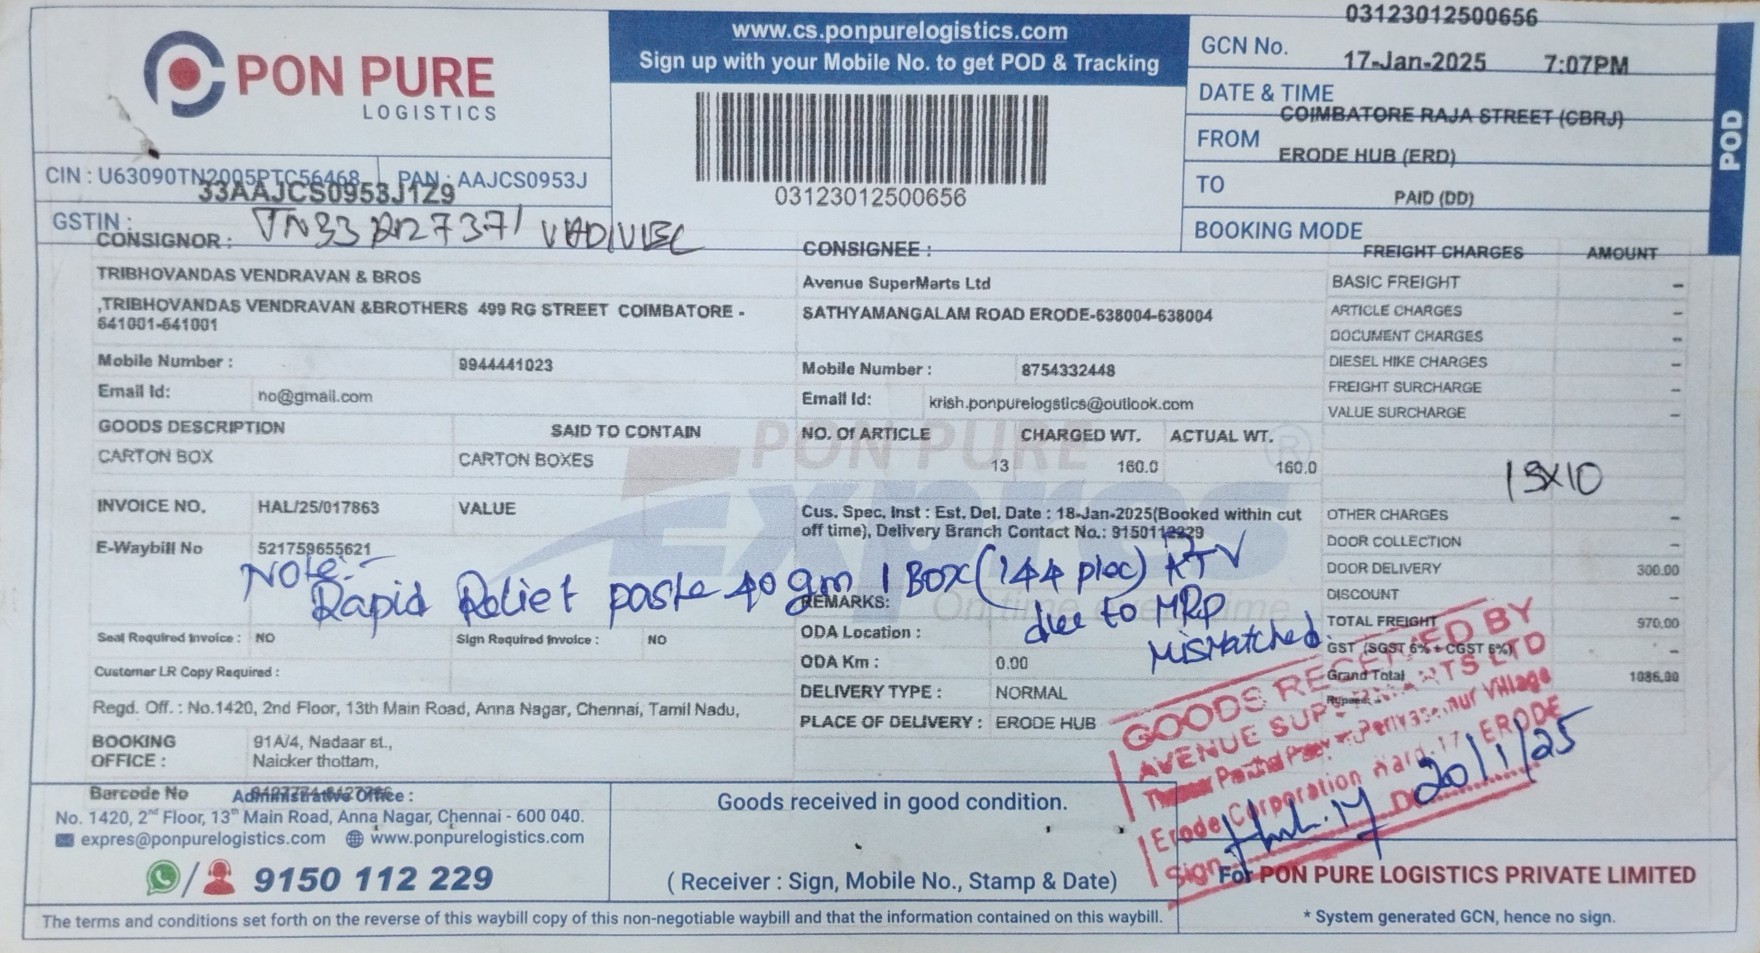 03123012500656
www.cs.ponpurelogistics.com
Sign up with your Mobile No. to get POD & Tracking
GCN No.
17-Jan-2025 7:07PM
PON PURE
LOGISTICS
DATE & TIME
COIMBATORE RAJA STREET (CBRJ)
FROM
ERODE HUB (ERD)
TO
PAID (DD)
BOOKING MODE
POD
03123012500656
CIN : U63090TN2005PTC56468 PAN : AAJCS0953J
33AAJCS0953J1Z9
GSTIN :
CONSIGNOR :
TRIBHOVANDAS VENDRAVAN & BROS
,TRIBHOVANDAS VENDRAVAN &BROTHERS 499 RG STREET COIMBATORE -
641001-641001
Mobile Number : 9944441023
Email Id: no@gmail.com
CONSIGNEE :
Avenue SuperMarts Ltd
SATHYAMANGALAM ROAD ERODE-638004-638004
Mobile Number : 8754332448
Email Id: krish.ponpurelogstics@outlook.com
FREIGHT CHARGES AMOUNT
BASIC FREIGHT -
ARTICLE CHARGES -
DOCUMENT CHARGES -
DIESEL HIKE CHARGES -
FREIGHT SURCHARGE -
VALUE SURCHARGE -
13X10
GOODS DESCRIPTION SAID TO CONTAIN NO. Of ARTICLE CHARGED WT. ACTUAL WT.
CARTON BOX CARTON BOXES 13 160.0 160.0
PON PURE
Expres
®
INVOICE NO. HAL/25/017863 VALUE
Cus. Spec. Inst : Est. Del. Date : 18-Jan-2025(Booked within cut
off time), Delivery Branch Contact No.: 9150112229
E-Waybill No 521759655621
Note:-
Rapid Relief paste 40 gm 1 Box (144 piec) RTV
due to MRP
Mismatched
OTHER CHARGES -
DOOR COLLECTION -
DOOR DELIVERY 300.00
DISCOUNT -
TOTAL FREIGHT 970.00
GST (SGST 6% + CGST 6%) -
Grand Total 1086.00
Rupees:
REMARKS:
On time
time
Seal Required Invoice : NO Sign Required Invoice : NO
ODA Location :
ODA Km : 0.00
DELIVERY TYPE : NORMAL
PLACE OF DELIVERY : ERODE HUB
Customer LR Copy Required :
Regd. Off. : No.1420, 2nd Floor, 13th Main Road, Anna Nagar, Chennai, Tamil Nadu,
BOOKING OFFICE : 91A/4, Nadaar st.,
Naicker thottam,
Barcode No
Administrative Office :
No. 1420, 2nd Floor, 13th Main Road, Anna Nagar, Chennai - 600 040.
expres@ponpurelogistics.com www.ponpurelogistics.com
/ 9150 112 229
Goods received in good condition.
( Receiver : Sign, Mobile No., Stamp & Date)
GOODS RECEIVED BY
AVENUE SUPERMARTS LTD
Village
Erode Corporation Ward-17, ERODE
Sign
20/1/25
For PON PURE LOGISTICS PRIVATE LIMITED
The terms and conditions set forth on the reverse of this waybill copy of this non-negotiable waybill and that the information contained on this waybill.
* System generated GCN, hence no sign.